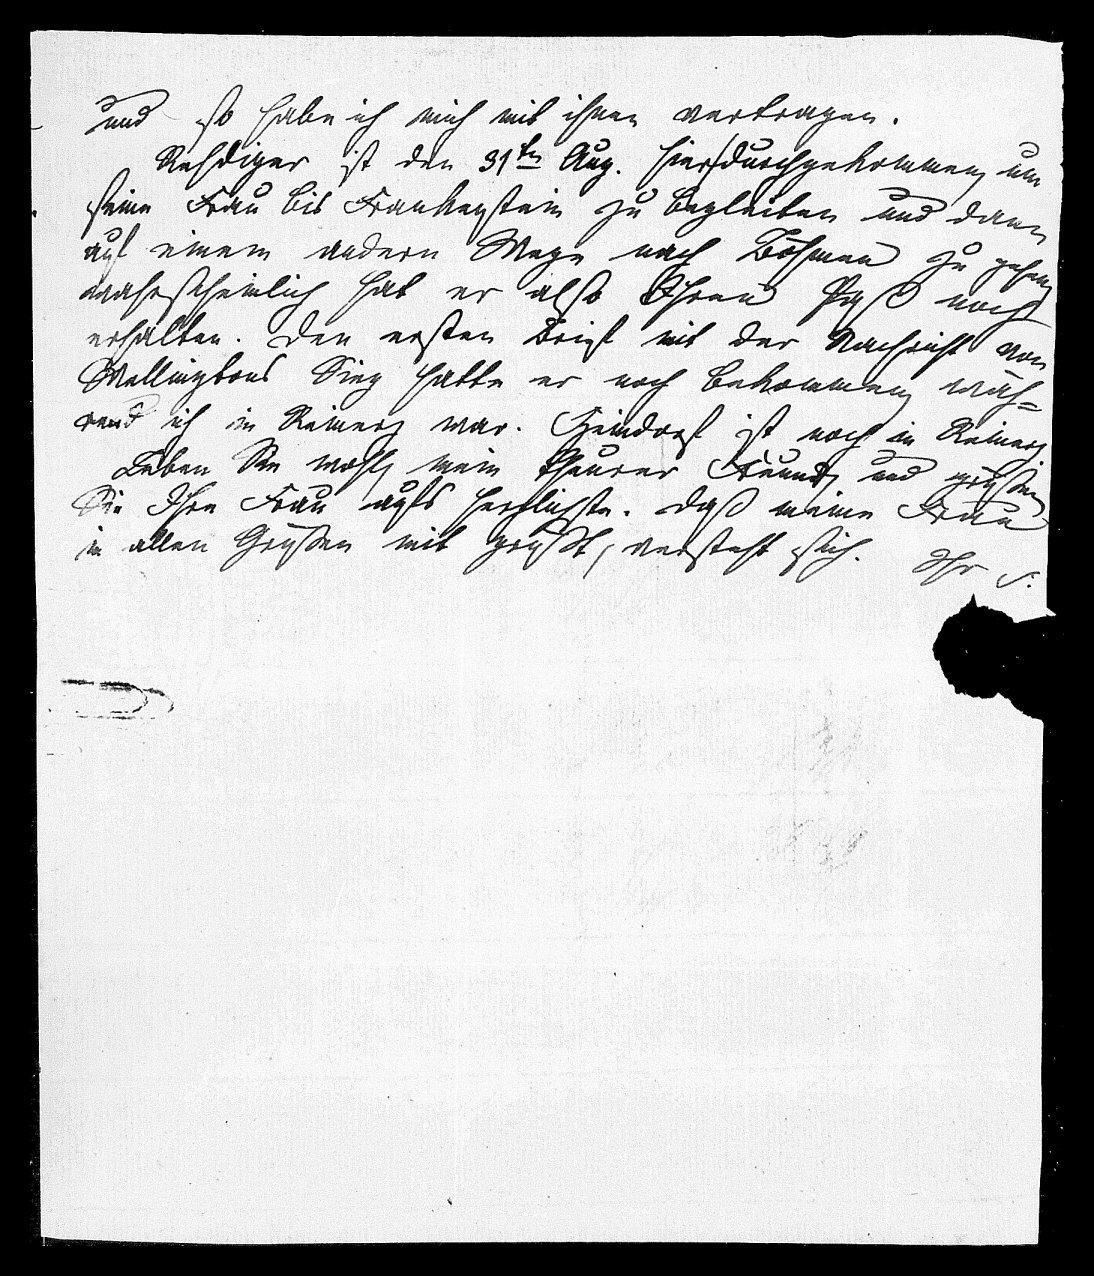 und so habe ich mich mit ihnen vertragen.
Rehdiger ist den 31ten Aug. hier durchgekommen um
seine Frau bis Frankenstein zu begleiten und dann
auf einem andern Wege nach Böhmen zu gehen
wahrscheinlich hat er also Ihren Paß noch
erhalten. Den ersten Brief mit der Nachricht von
Wellingtons Sieg hatte er noch bekommen wäh-
rend ich in Reinerz war. Heindorf ist noch in Reinerz
Leben Sie wohl mein theurer Freund und grüßen
Sie Ihre Frau aufs herzlichste. Daß meine Frau
in allen Grüßen mit grüßt, versteht sich. Ihr S.